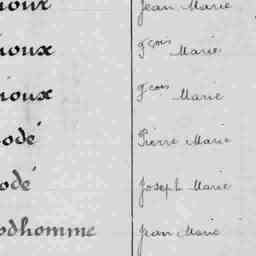 ioux Jean Marie
ioux gcois Marie
ioux gcois Marie
odé Pierre Marie
odé Joseph Marie
odhomme Jean Marie